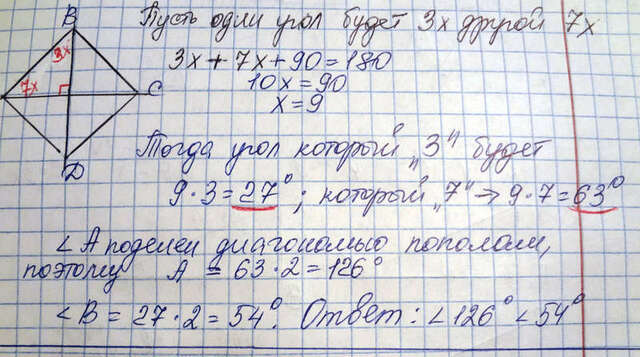 B
3x
7x
C
D
Пусть один угол будет 3x другой 7x
3x + 7x + 90 = 180
10x = 90
x = 9
Тогда угол который "3" будет
9 · 3 = 27°; который "7" → 9 · 7 = 63°
∠A поделен диагональю пополам,
поэтому A = 63 · 2 = 126°
∠B = 27 · 2 = 54°. Ответ: ∠126° ∠54°